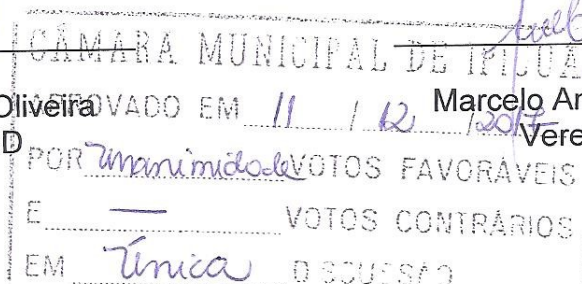 CÂMARA MUNICIPAL DE IPIGUÁ
Oliveira
Marcelo An
APROVADO EM 11 / 12 / 2017
D
Vere
POR Unanimidade VOTOS FAVORÁVEIS
E — VOTOS CONTRÁRIOS
EM Única DISCUSSÃO